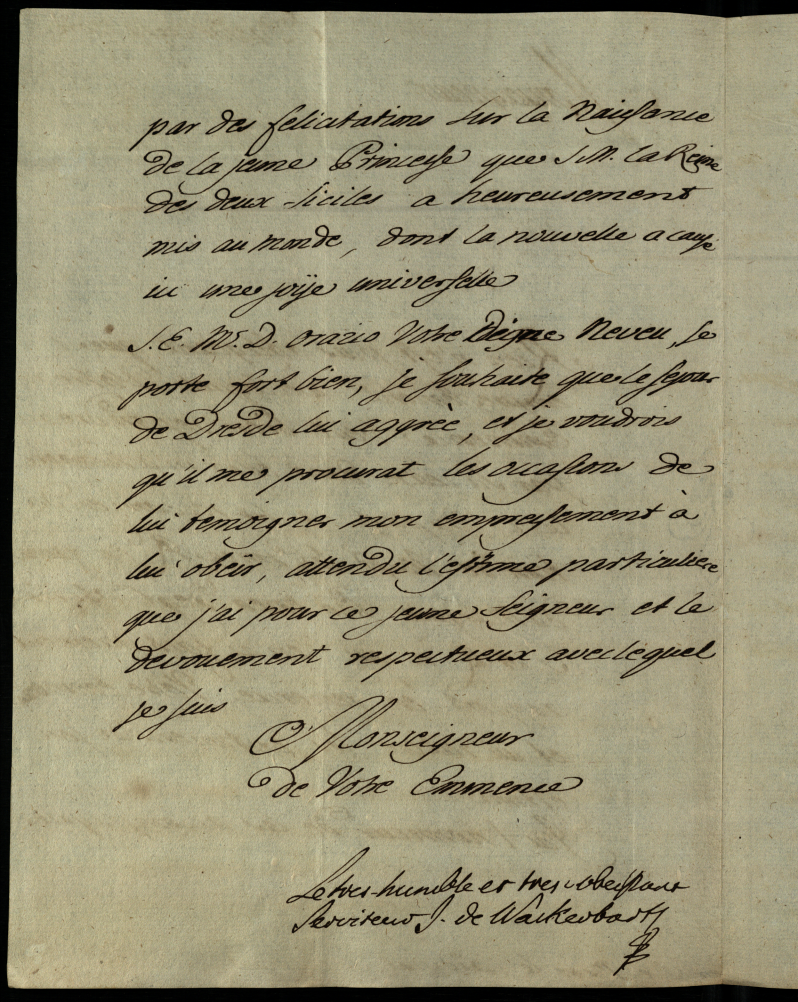 par des felicitations sur la Naissance
de la jeune Princesse que S.M. la Reine
des deux Siciles a heureusement
mis au monde, dont la nouvelle a causé
ici une joÿe universelle
S.E. Mr. D. Orazio Votre Digne Neveu, se
porte fort bien, je souhaite que le sejour
de Dresde lui aggrée, et je voudrois
qu'il me procurat les occasions de
lui temoigner mon empressement à
lui obéir, attendu l'estime particuliere
que j'ai pour ce jeune Seigneur et le
devouement respectueux avec lequel
je suis
Monseigneur
de Votre Eminence
Le tres-humble et tres-obeissant
Serviteur J. de Wackerbarth